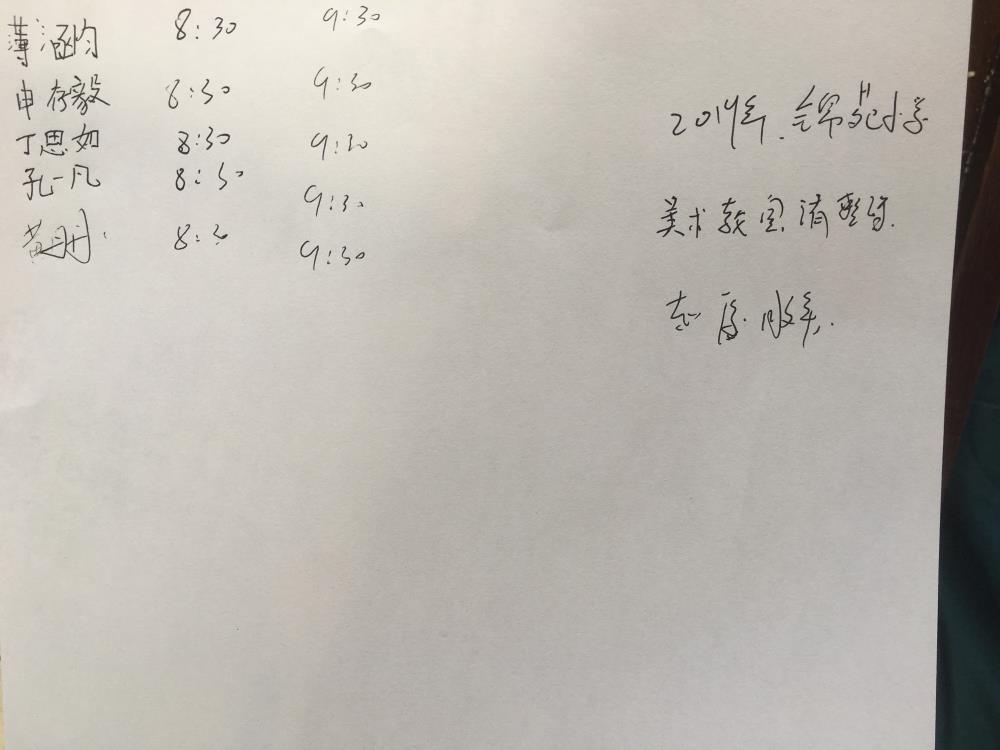 薄涵昀 8:30 9:30
申存毅 8:30 9:30
丁思如 8:30 9:30
孔一凡 8:30 9:30
黄 8:30 9:30
2019年.锦苑小学
美术教室清整
志愿服务.